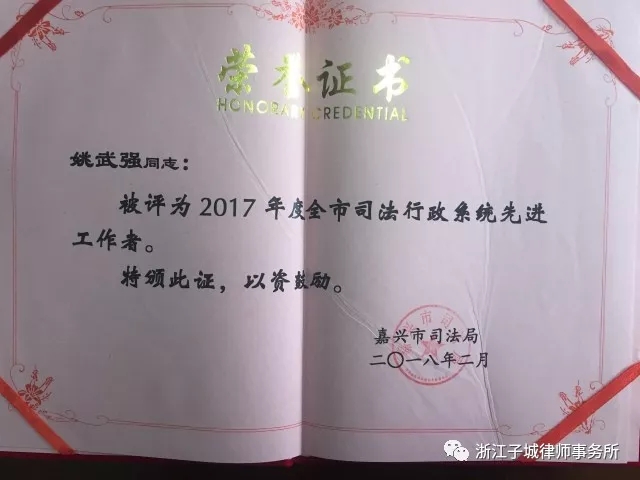 荣誉证书
HONORARY CREDENTIAL
姚武强同志：
被评为2017年度全市司法行政系统先进
工作者。
特颁此证，以资鼓励。
嘉兴市司法局
二〇一八年二月
浙江子城律师事务所